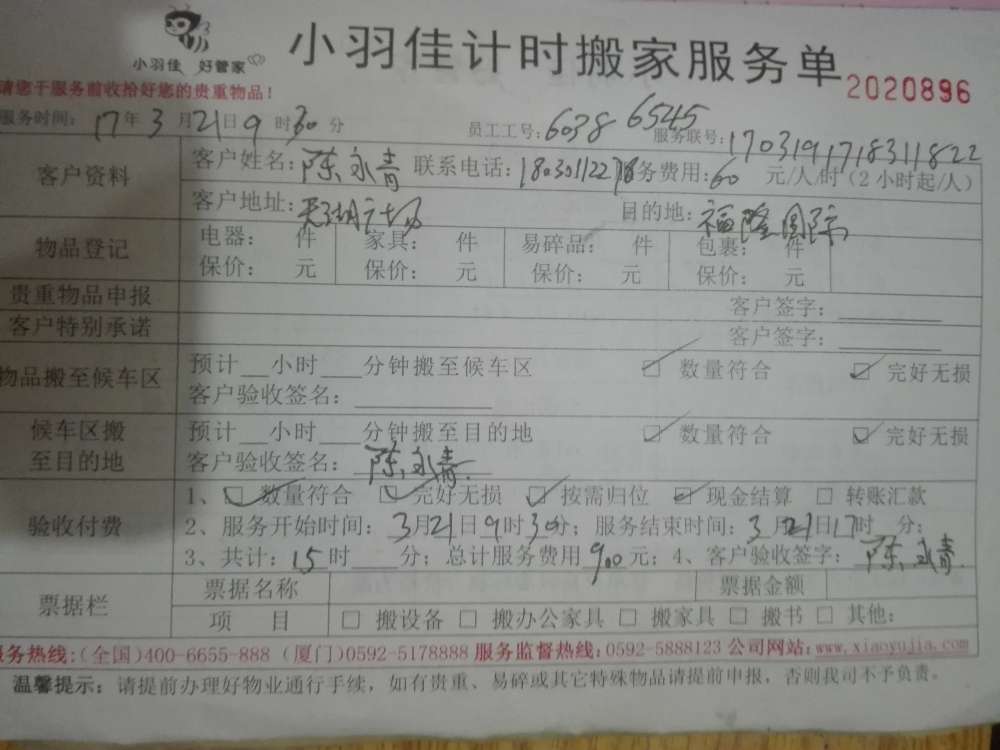 小羽佳 好管家
小羽佳计时搬家服务单
2020896
请您于服务前收拾好您的贵重物品!
服务时间: 17年3月21日9时30分 员工工号: 6038 6545 服务联号: 1703191718311822
客户资料 客户姓名: 陈永青 联系电话: 1803011227 服务费用: 60元/人/时(2小时起/人)
客户地址: 广场 目的地: 福隆国际
物品登记 电器: 件 家具: 件 易碎品: 件 包裹: 件
保价: 元 保价: 元 保价: 元 保价: 元
贵重物品申报 客户签字:
客户特别承诺 客户签字:
物品搬至候车区 预计__小时___分钟搬至候车区 ☑ 数量符合 ☑ 完好无损
客户验收签名:
候车区搬至目的地 预计__小时___分钟搬至目的地 ☑ 数量符合 ☑ 完好无损
客户验收签名: 陈永青
验收付费 1、☑ 数量符合 ☑ 完好无损 ☑ 按需归位 ☑ 现金结算 □ 转账汇款
2、服务开始时间: 3月21日9时30分; 服务结束时间: 3月21日17时 分;
3、共计: 15时 分; 总计服务费用900元; 4、客户验收签字: 陈永青
票据栏 票据名称 票据金额
项 目 □ 搬设备 □ 搬办公家具 □ 搬家具 □ 搬书 □ 其他:
服务热线:(全国)400-6655-888 (厦门)0592-5178888 服务监督热线:0592-5888123 公司网站:www.xiaoyujia.com
温馨提示: 请提前办理好物业通行手续, 如有贵重、易碎或其它特殊物品请提前申报, 否则我司不予负责。